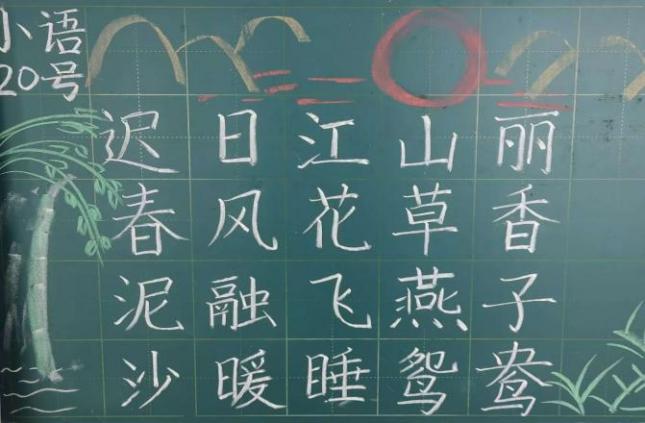 小语
20号
迟日江山丽
春风花草香
泥融飞燕子
沙暖睡鸳鸯